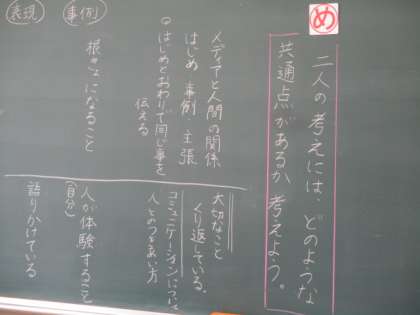 め
二人の考えには、どのような
共通点があるか考えよう。
メディアと人間の関係
はじめ 事例 主張
はじめとおわりで同じ事を
伝える
根きょになること
大切なこと
くり返している。
コミュニケーションについて
人とのつきあい方
人が体験すること
(自分)
語りかけている
事例
表現